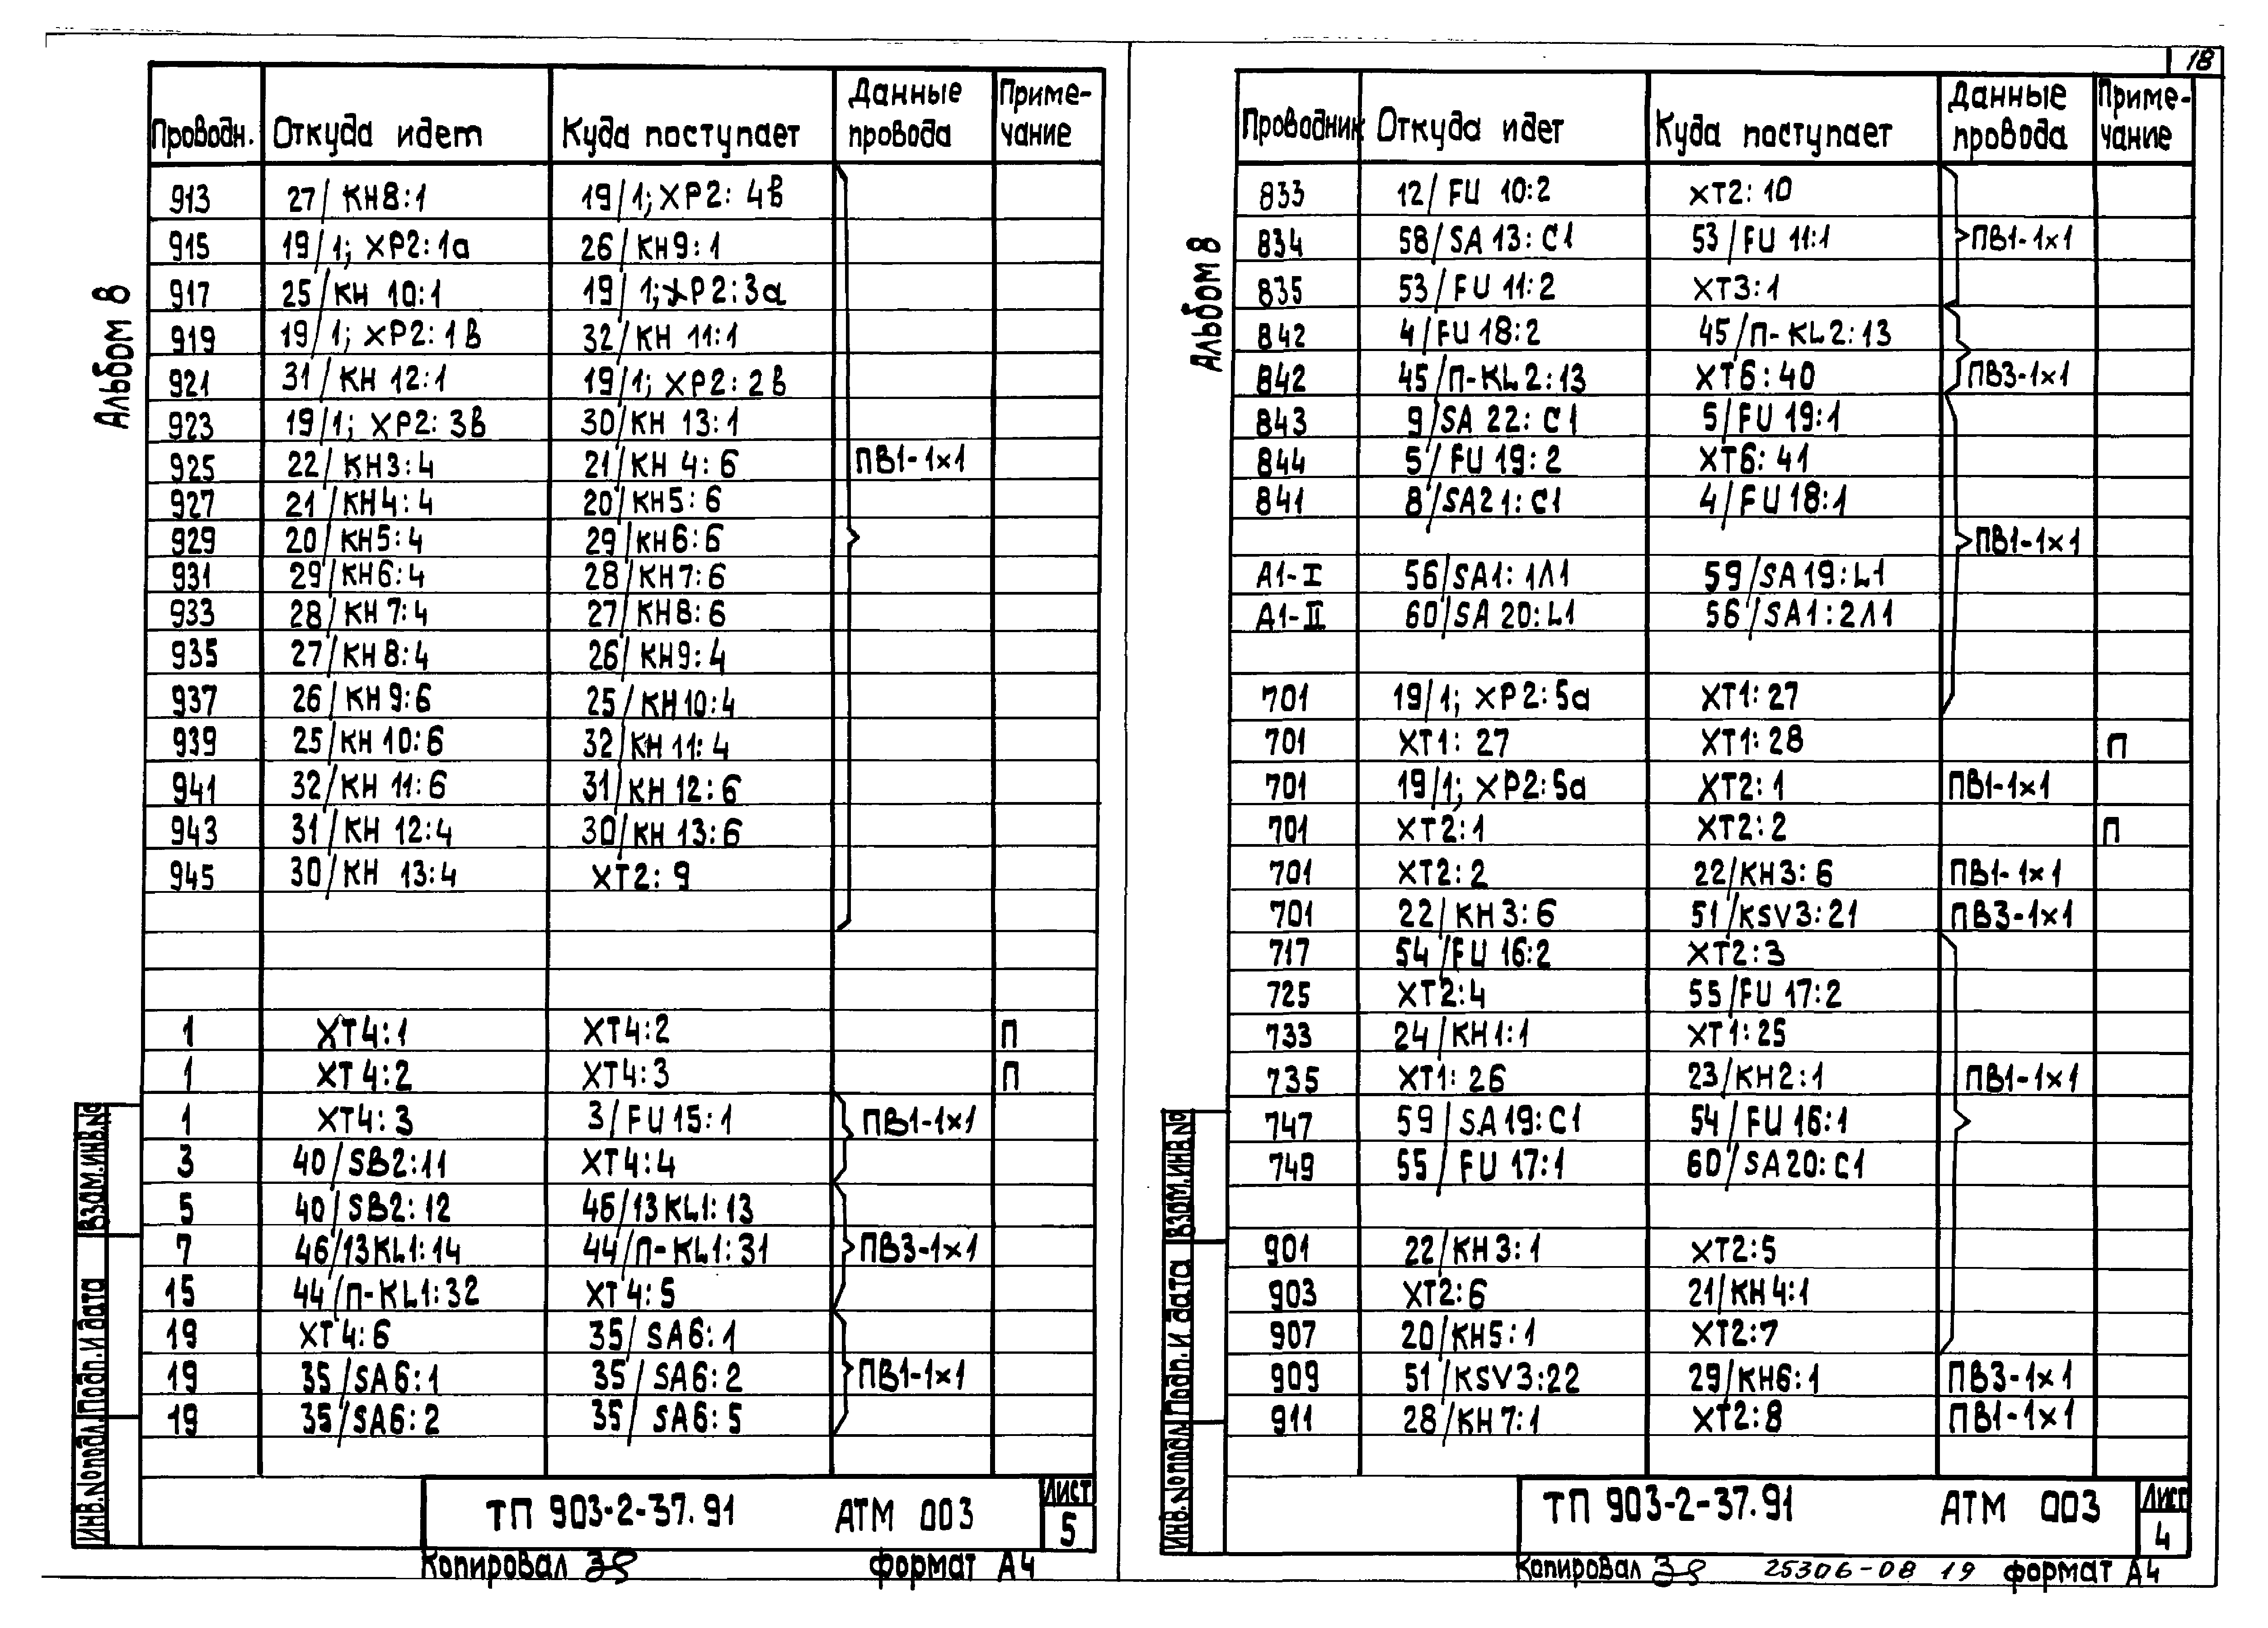 18
Альбом 8
Проводн. Откуда идет Куда поступает Данные провода Приме-чание
913 27/КН8:1 19/1; ХР2:4в
915 19/1; ХР2:1а 26/КН9:1
917 25/КН 10:1 19/1; ХР2:3а
919 19/1; ХР2:1в 32/КН 11:1
921 31/КН 12:1 19/1; ХР2:2в
923 19/1; ХР2:3в 30/КН 13:1
925 22/КН3:4 21/КН 4:6 ПВ1-1×1
927 21/КН4:4 20/КН5:6
929 20/КН5:4 29/КН6:6
931 29/КН6:4 28/КН7:6
933 28/КН 7:4 27/КН8:6
935 27/КН8:4 26/КН9:4
937 26/КН 9:6 25/КН10:4
939 25/КН 10:6 32/КН 11:4
941 32/КН 11:6 31/КН 12:6
943 31/КН 12:4 30/КН 13:6
945 30/КН 13:4 ХТ2:9
1 ХТ4:1 ХТ4:2 П
1 ХТ4:2 ХТ4:3 П
1 ХТ4:3 3/FU15:1 ПВ1-1×1
3 40/SB2:11 ХТ4:4
5 40/SB2:12 46/13KL1:13
7 46/13KL1:14 44/П-KL1:31 ПВ3-1×1
15 44/П-KL1:32 ХТ4:5
19 ХТ4:6 35/SA6:1
19 35/SA6:1 35/SA6:2 ПВ1-1×1
19 35/SA6:2 35/SA6:5
Взам.инв.№
Подп. и дата
Инв.№подл.
ТП 903-2-37.91 АТМ 003 Лист 5
Копировал формат А4
Альбом 8
Проводник Откуда идет Куда поступает Данные провода Приме-чание
833 12/FU 10:2 ХТ2:10
834 58/SA 13:С1 53/FU 11:1 ПВ1-1×1
835 53/FU 11:2 ХТ3:1
842 4/FU18:2 45/П-KL2:13
842 45/П-KL2:13 ХТ6:40 ПВ3-1×1
843 9/SA 22:С1 5/FU 19:1
844 5/FU 19:2 ХТ6:41
841 8/SA21:С1 4/FU18:1
ПВ1-1×1
А1-I 56/SA1:1Л1 59/SA19:L1
А1-II 60/SA 20:L1 56/SA1:2Л1
701 19/1; ХР2:5а ХТ1:27
701 ХТ1:27 ХТ1:28 П
701 19/1; ХР2:5а ХТ2:1 ПВ1-1×1
701 ХТ2:1 ХТ2:2 П
701 ХТ2:2 22/КН3:6 ПВ1-1×1
701 22/КН3:6 51/KSV3:21 ПВ3-1×1
717 54/FU 16:2 ХТ2:3
725 ХТ2:4 55/FU 17:2
733 24/КН1:1 ХТ1:25
735 ХТ1:26 23/КН2:1 ПВ1-1×1
747 59/SA19:С1 54/FU 16:1
749 55/FU 17:1 60/SA20:С1
901 22/КН3:1 ХТ2:5
903 ХТ2:6 21/КН4:1
907 20/КН5:1 ХТ2:7
909 51/KSV3:22 29/КН6:1 ПВ3-1×1
911 28/КН7:1 ХТ2:8 ПВ1-1×1
Взам.инв.№
Подп. и дата
Инв.№подл.
ТП 903-2-37.91 АТМ 003 Лист 4
Копировал 25306-08 19 формат А4